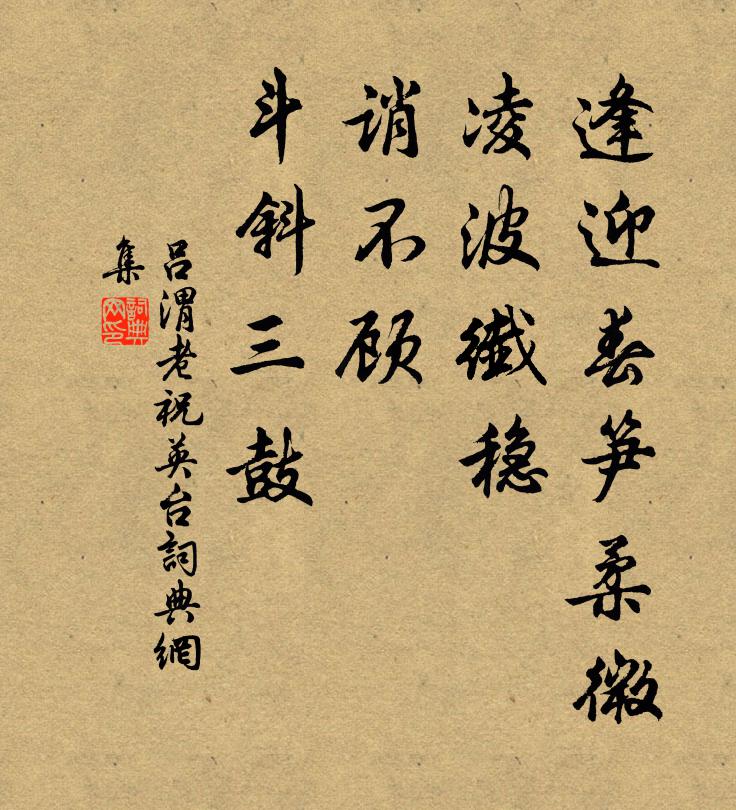 逢迎春笋柔微
凌波纖稳
诮不顾
斗斜三鼓
吕渭老祝英台詞典網
集
詞典网印